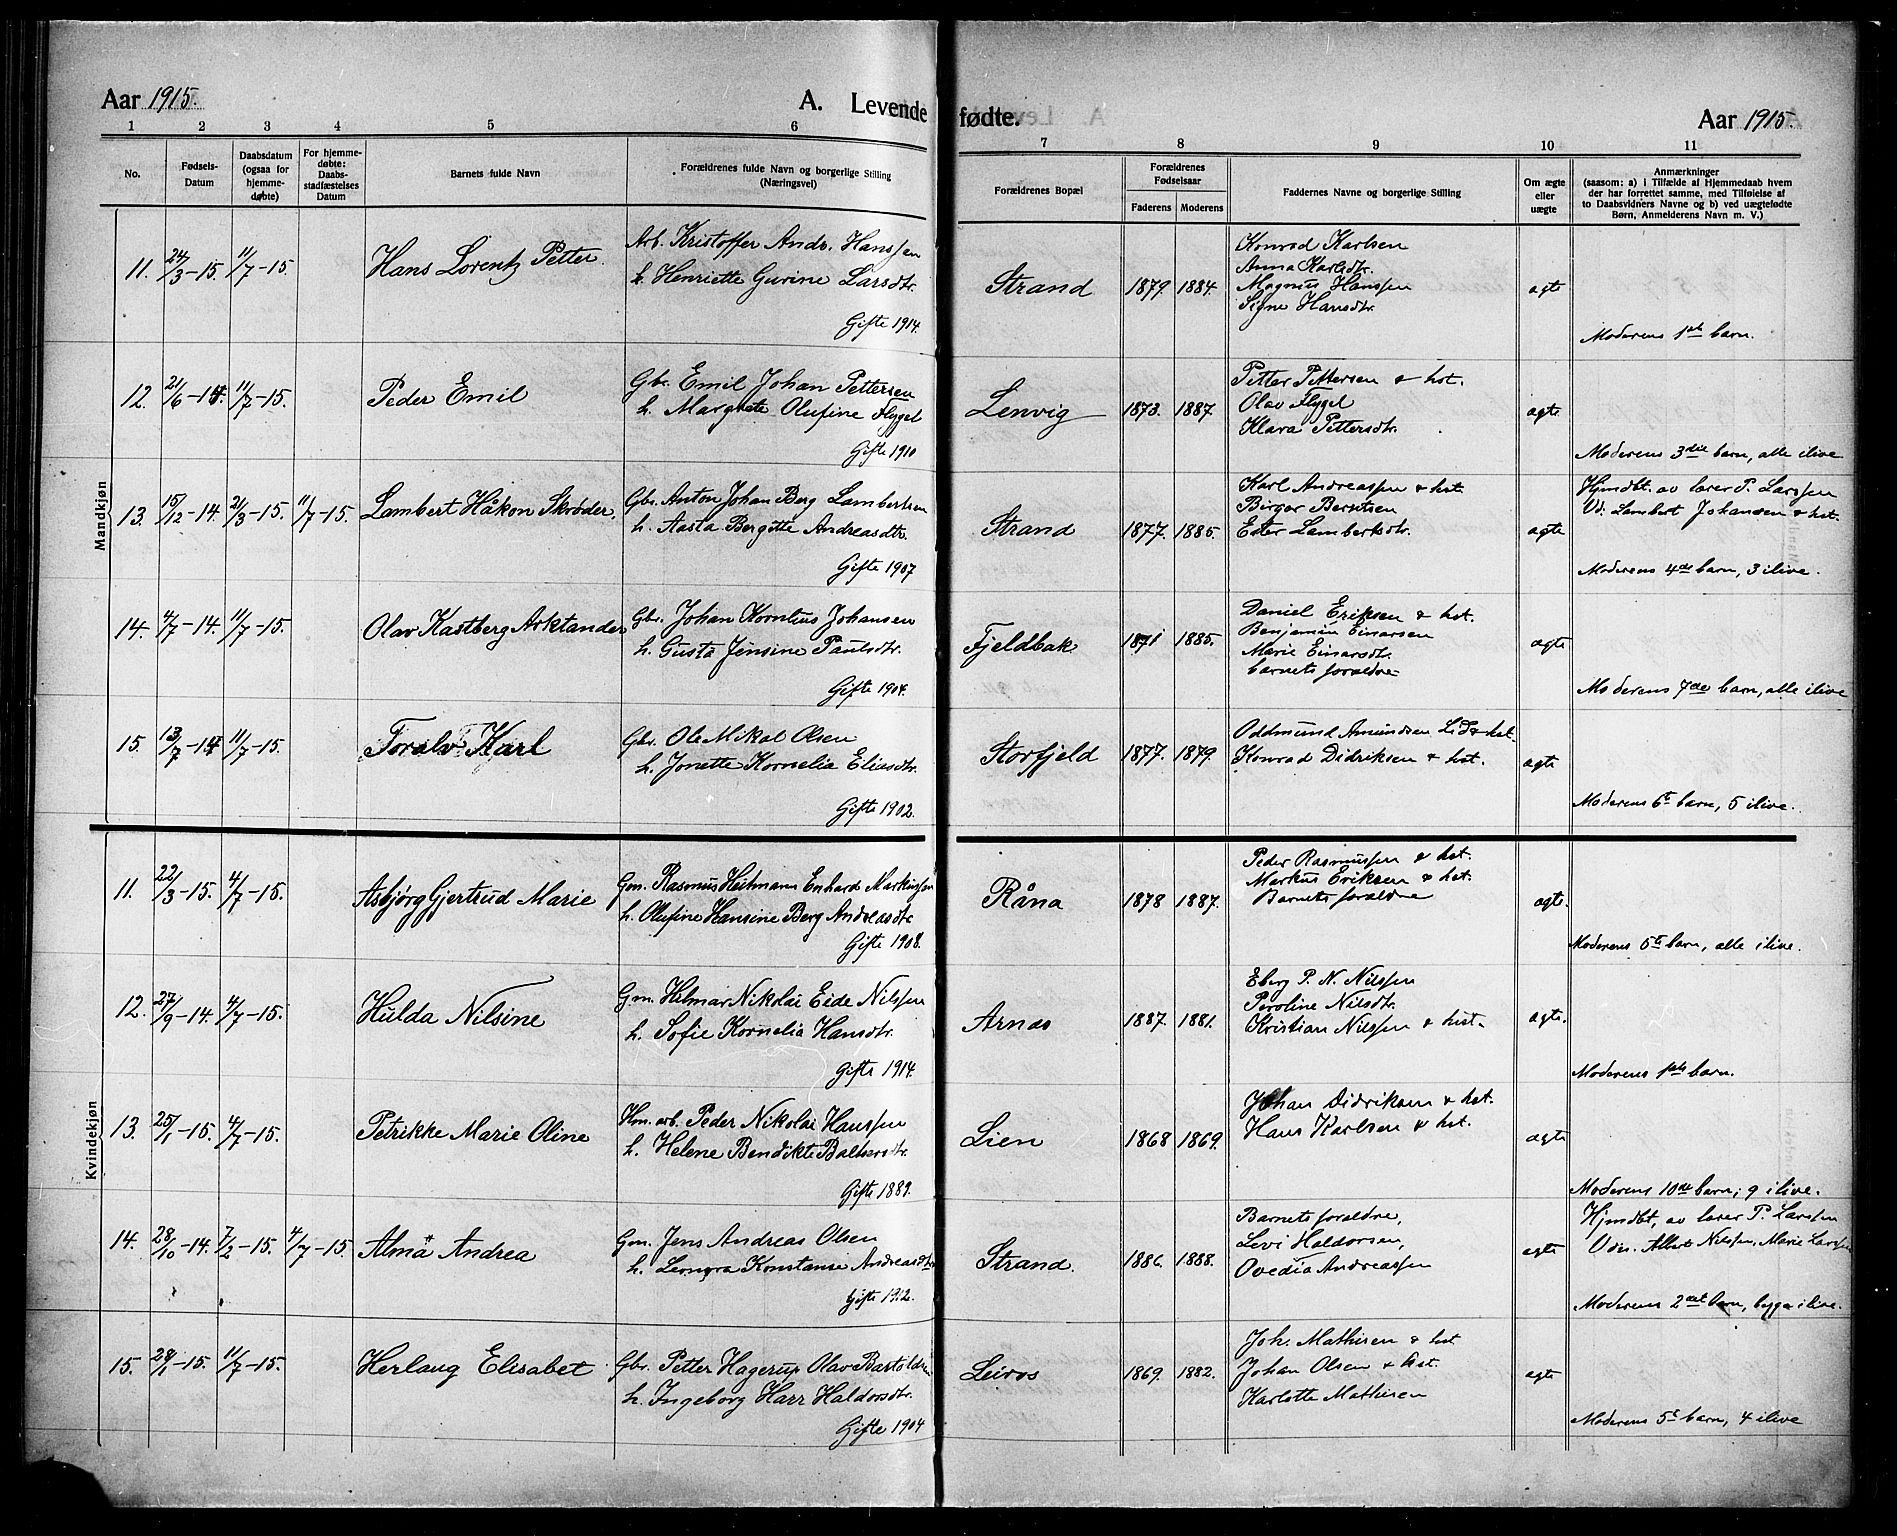 Aar 1915.
A. Levende
fødte.
Aar 1915.
1 2 3 4 5 6 7 8 9 10 11
No.
Fødsels-
Datum
Daabsdatum
(ogsaa for
hjemme-
døbte)
For hjemme-
døbte:
Daabs-
stadfæstelses
Datum
Barnets fulde Navn
Forældrenes fulde Navn og borgerlige Stilling
(Næringsvei)
Forældrenes Bopæl
Forældrenes
Fødselsaar
Faderens Moderens
Faddernes Navne og borgerlige Stilling
Om ægte
eller
uægte
Anmærkninger
(saasom: a) i Tilfælde af Hjemmedaab hvem
der har forrettet samme, med Tilføielse af
to Daabsvidners Navne og b) ved uægtefødte
Børn, Anmelderens Navn m. V.)
Mandkjøn
11. 24/3-15. 11/7-15. Hans Lorentz Petter.
Arb. Kristoffer Andr. Hanssen
h. Henriette Gurine Larsdtr.
Gifte 1914.
Strand 1879. 1884.
Konrad Karlsen
Anna Karlsdtr.
Magnus Hanssen
Signe Hansdtr.
ægte
Moderens 1ste barn.
12. 21/6-14 11/7-15. Peder Emil
Gbr. Emil Johan Pettersen
h. Margrete Olufine Flygel
Gifte 1910
Lenvig 1873. 1887.
Petter Pettersen & hst.
Olav Flygel
Klara Pettersdtr.
ægte
Moderens 3die barn, alle ilive
13. 15/12-14. 21/3-15. 11/7-15. Lambert Håkon Skrøder.
Gbr. Anton Johan Berg Lambertsen
h. Aasta Bergitte Andreasdtr.
Gifte 1907
Strand 1877. 1885.
Karl Andreassen & hst.
Birger Berntsen
Ester Lambertsdtr.
ægte
Hjmdbt. av lærer P. Larssen
Vd. Lambert Johansen & hst.
Moderens 4de barn, 3 ilive.
14. 4/7-14. 11/7-15. Olav Kastberg Arktander
Gbr. Johan Kornelius Johansen
h. Gusta Jensine Paulsdtr.
Gifte 1904.
Fjeldbak 1871 1885.
Daniel Eriksen & hst.
Benjamin Einarsen
Marie Einarsdtr.
barnets forældre
ægte
Moderens 7de barn, alle ilive
15. 13/7-14 11/7-15. Toralv Karl
Gbr. Ole Mikal Olsen
h. Jonette Kornelia Eliasdtr.
Gifte 1902.
Storfjeld 1877. 1879.
Oddmund Amundsen Lid & hst.
Konrad Didriksen & hst.
ægte
Moderens 6te barn, 5 ilive.
Kvindekjøn
11. 22/3-15. 4/7-15. Asbjørg Gjertrud Marie
Gm. Rasmus Heitmann Enhard Markussen
h. Olufine Hansine Berg Andreasdtr
Gifte 1908.
Råna 1878 1887.
Peder Rasmussen & hst.
Markus Eriksen & hst.
Barnets forældre
ægte.
Moderens 5te barn, alle ilive.
12. 27/9-14. 4/7-15. Hulda Nilsine
Gm. Hilmar Nikolai Eide Nilssen
h. Sofie Kornelia Hansdtr.
Gifte 1914.
Arnes 1887. 1881.
Eberg P. N. Nilssen
Peroline Nilsdtr.
Kristian Nilssen & hst.
ægte.
Moderens 1ste barn.
13. 25/1-15. 4/7-15. Petrikke Marie Oline
Hm. arb. Peder Nikolai Hanssen
h. Helene Bendikte Baltsersdtr.
Gifte 1889.
Lien 1868 1869.
Johan Didriksen & hst.
Hans Karlsen & hst.
ægte
Moderens 10de barn, 9 ilive.
14. 28/10-14. 7/2-15. 4/7-15. Alma Andrea
Gm. Jens Andreas Olsen
h. Leonora Konstanse Andreasdtr
Gifte 1912.
Strand. 1886. 1888.
Barnets forældre,
Levi Haldorsen,
Ovedia Andreassen
ægte
Hjmdbt. av lærer P. Larssen
Vdn. Albert Nilssen, Marie Larssen
Moderens 2det barn, begge ilive.
15. 28/1-15. 11/7-15. Herlaug Elisabet
Gbr. Petter Hagerup Olav Bartoldsen
h. Ingeborg Harr Haldorsdtr.
Gifte 1904
Leiros 1869. 1882.
Joh. Mathisen & hst
Johan Olsen & hst.
Karlotte Mathisen
ægte
Moderens 5te barn, 4 ilive